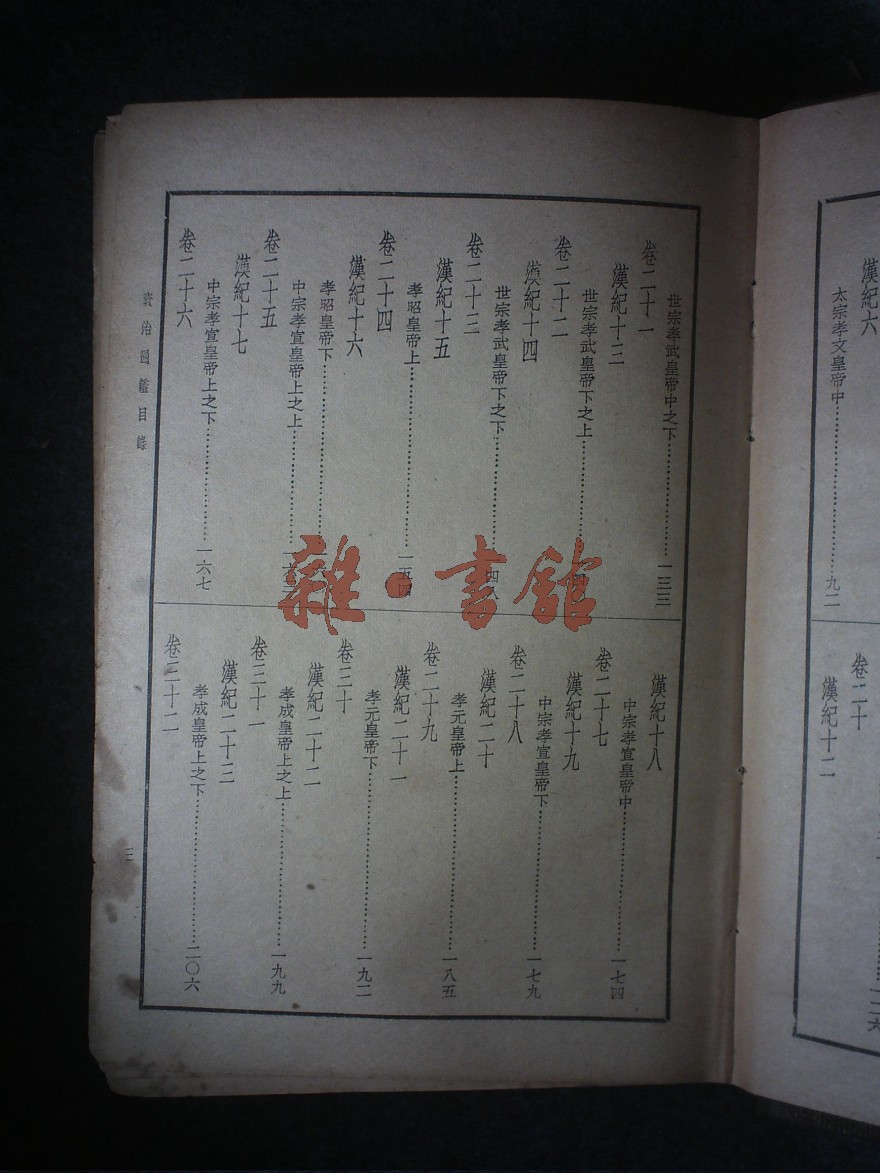 漢紀六
太宗孝文皇帝中……九二
卷二十
漢紀十二
世宗孝武皇帝中之下……一三三
卷二十一
漢紀十三
世宗孝武皇帝下之上……
卷二十二
漢紀十四
世宗孝武皇帝下之下……四八
卷二十三
漢紀十五
孝昭皇帝上……一五四
卷二十四
漢紀十六
孝昭皇帝下……
中宗孝宣皇帝上之上……
卷二十五
漢紀十七
中宗孝宣皇帝上之下……一六七
卷二十六
漢紀十八
中宗孝宣皇帝中……一七四
卷二十七
漢紀十九
中宗孝宣皇帝下……一七九
卷二十八
漢紀二十
孝元皇帝上……一八五
卷二十九
漢紀二十一
孝元皇帝下……一九二
卷三十
漢紀二十二
孝成皇帝上之上……一九九
卷三十一
漢紀二十三
孝成皇帝上之下……二〇六
卷三十二
資治通鑑目錄
三
雜·書館